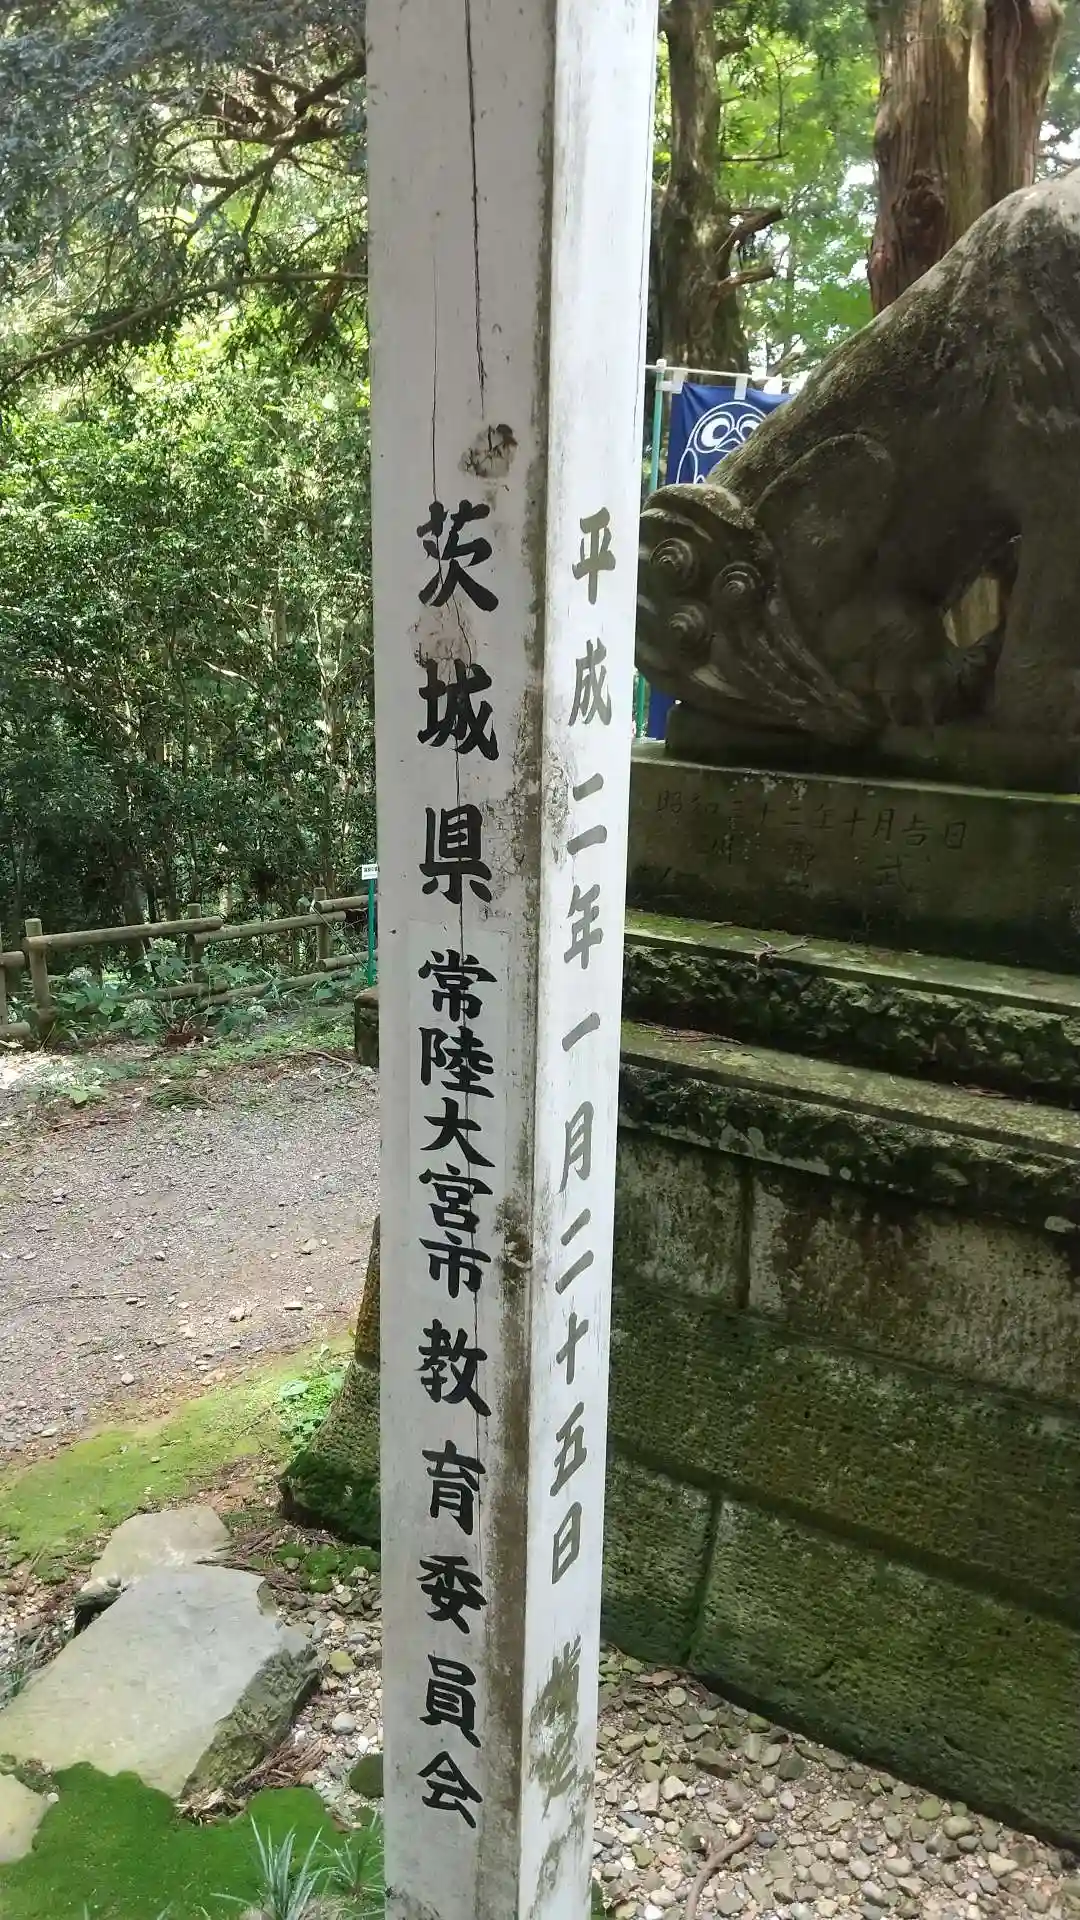 茨城県常陸大宮市教育委員会
平成二年一月二十五日
昭和三十三年十月吉日